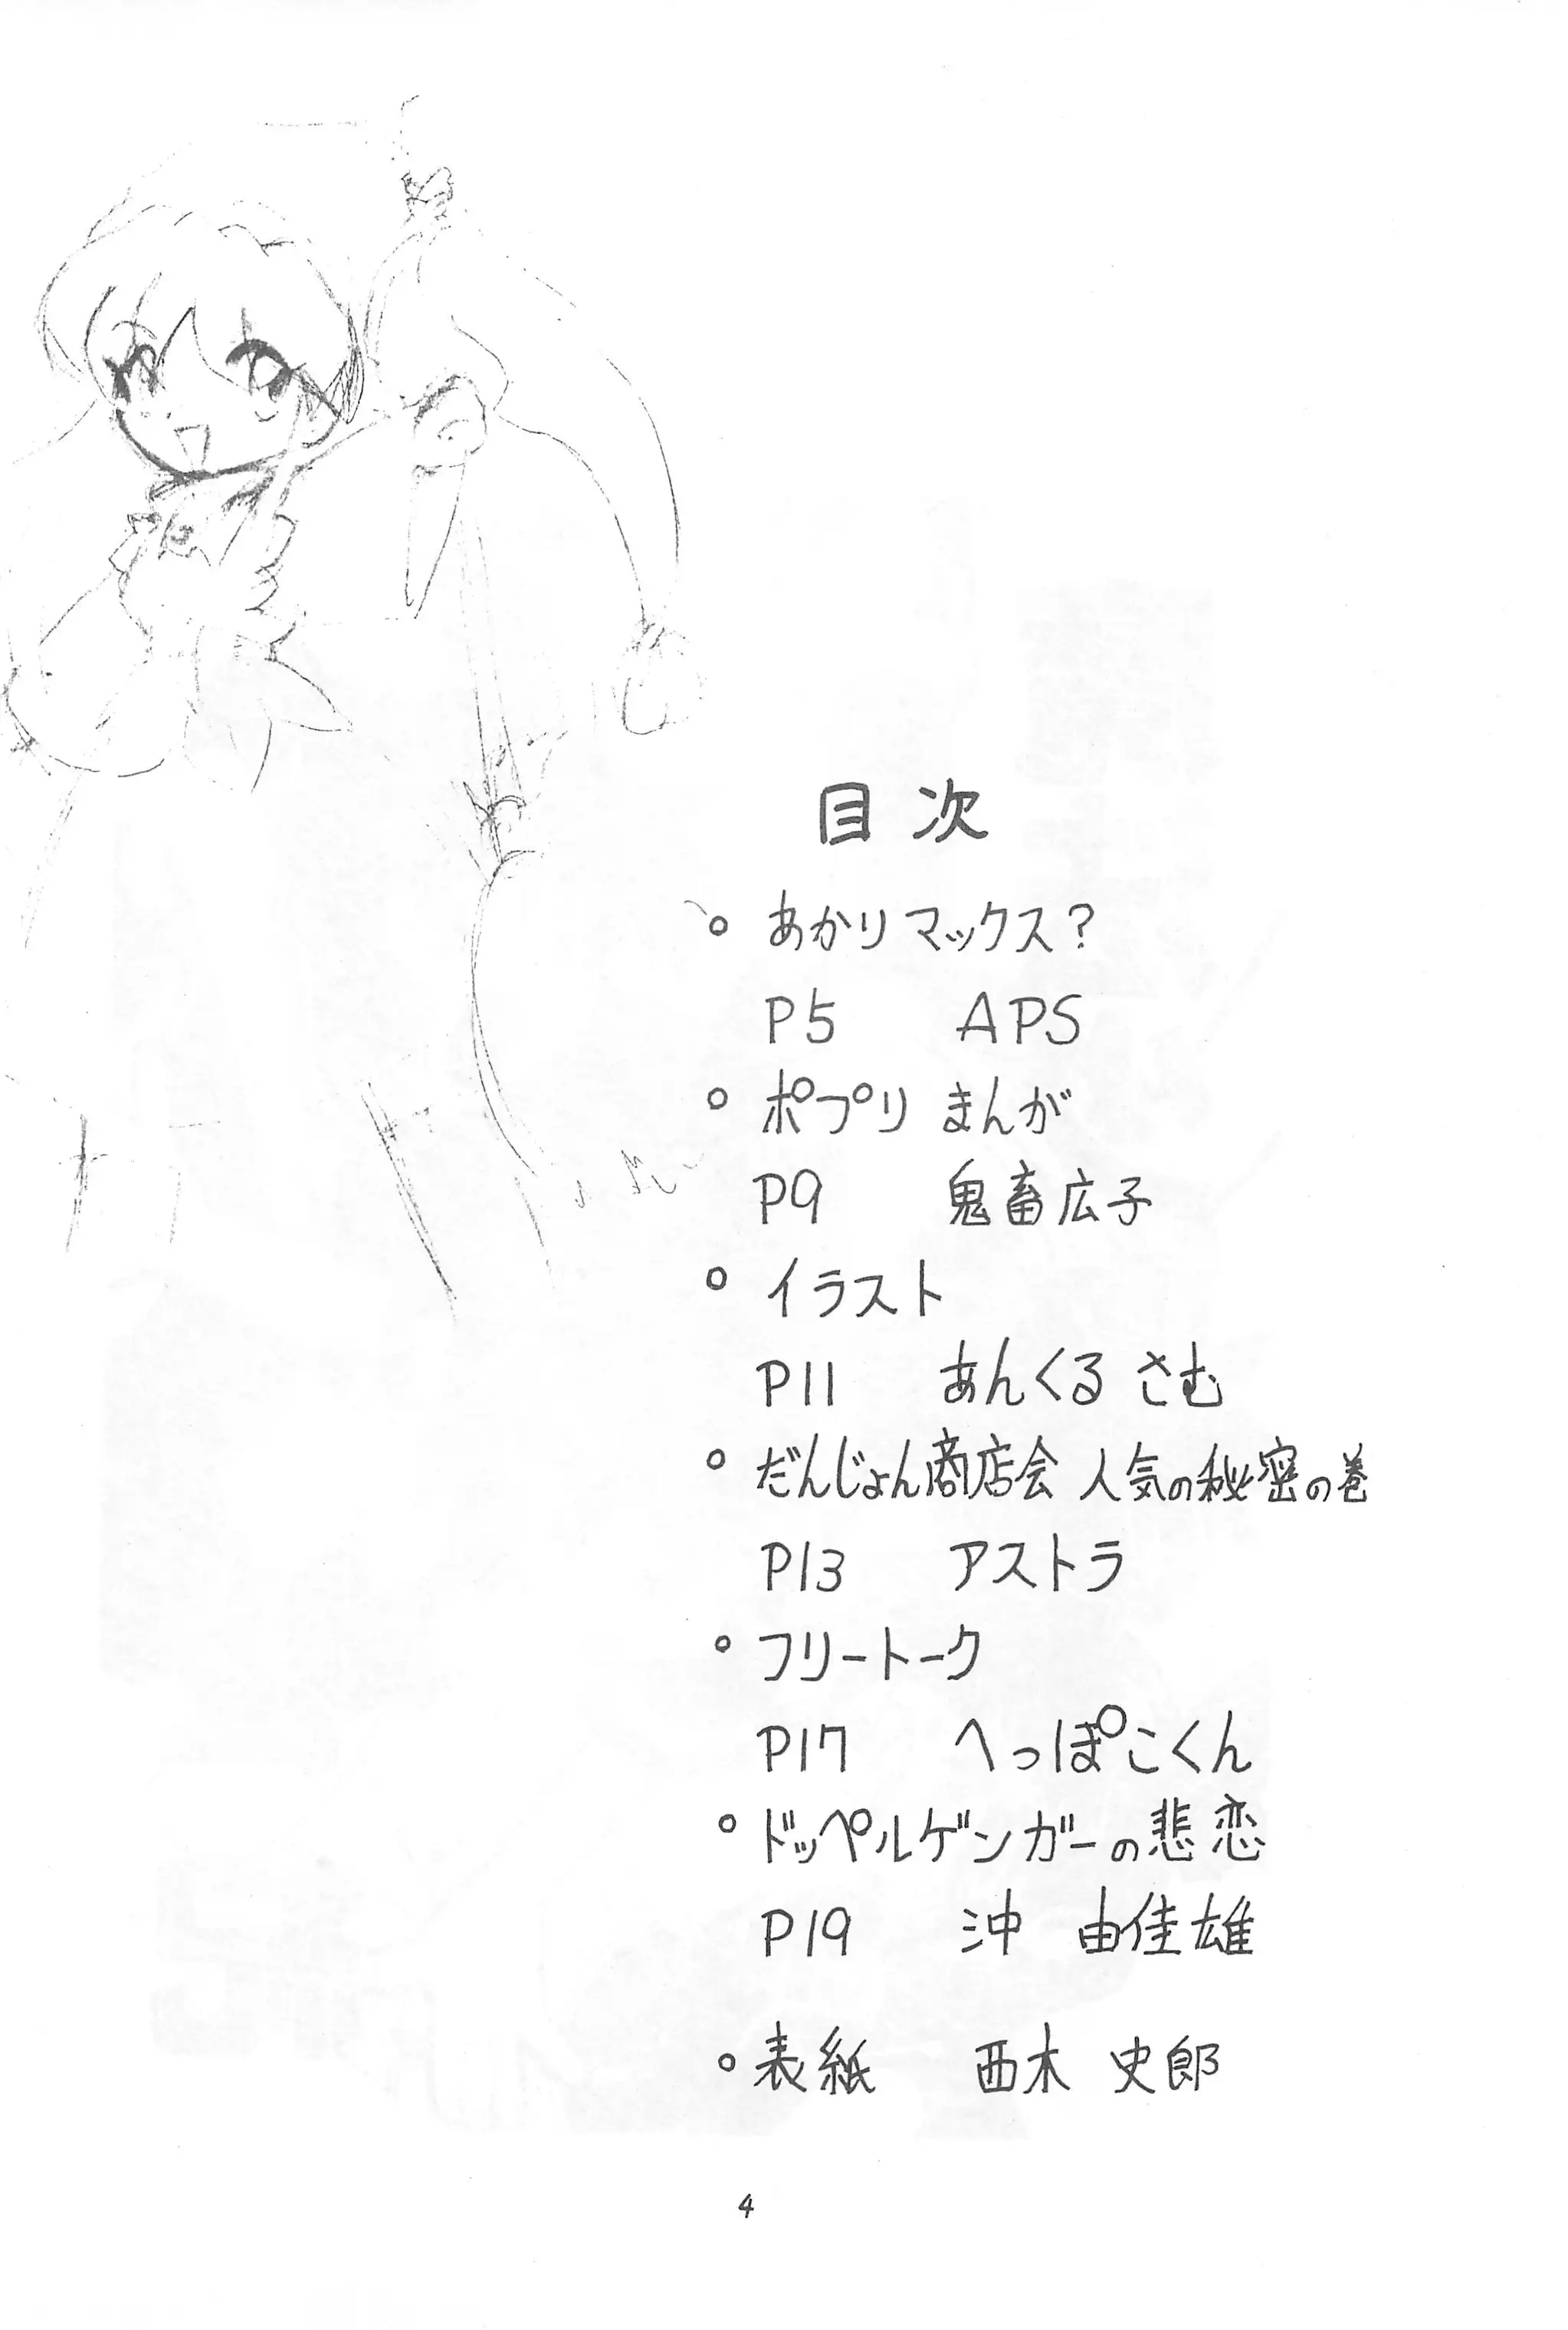 目次
。あかりマックス?
P5 APS
。ポプリ まんが
P9 鬼畜広子
。イラスト
P11 あんくる さむ
。だんじょん商店会 人気の秘密の巻
P13 アストラ
。フリートーク
P17 へっぽこくん
。ドッペルゲンガーの悲恋
P19 沖 由佳雄
。表紙 西木 史郎
4